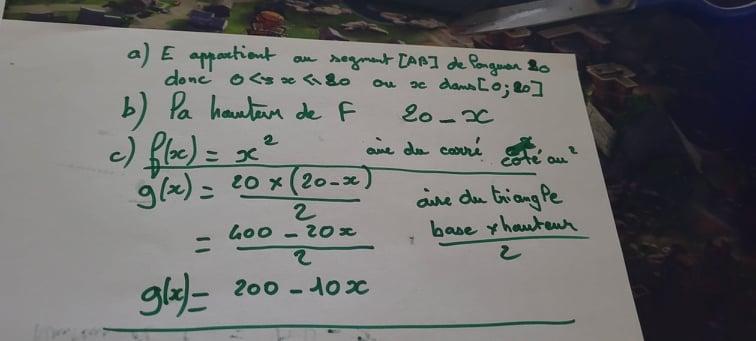 a) E appartient au segment [AB] de longueur 20
donc 0 ≤ x ≤ 20 ou x dans [0; 20]
b) la hauteur de F 20 - x
c) f(x) = x² aire du carré côté au ²
g(x) = 20 × (20 - x) / 2 aire du triangle
= 400 - 20x / 2 base × hauteur / 2
g(x) = 200 - 10x